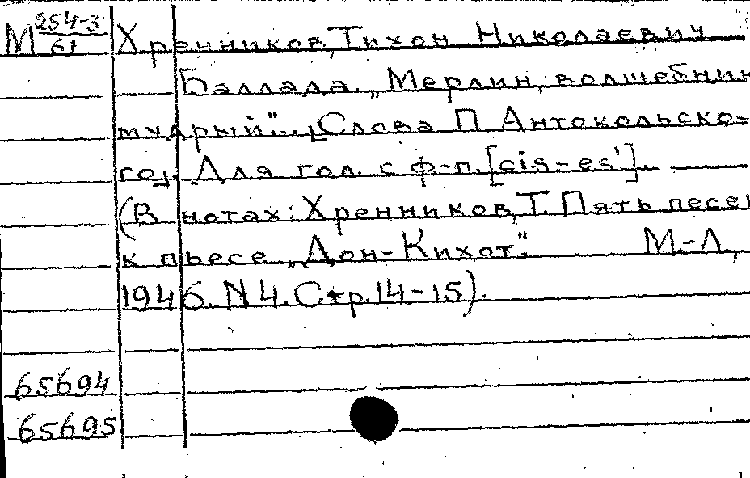 М 254-3/61 Хренников, Тихон Николаевич
Баллада „Мерлин, волшебник
мудрый"... [Слова П. Антокольско-
го]. Для гол. с ф-п. [cis-es'].
(В нотах: Хренников, Т. Пять песен
к пьесе „Дон-Кихот". М.-Л.,
1946. N 4. Стр. 14-15).
65694
65695